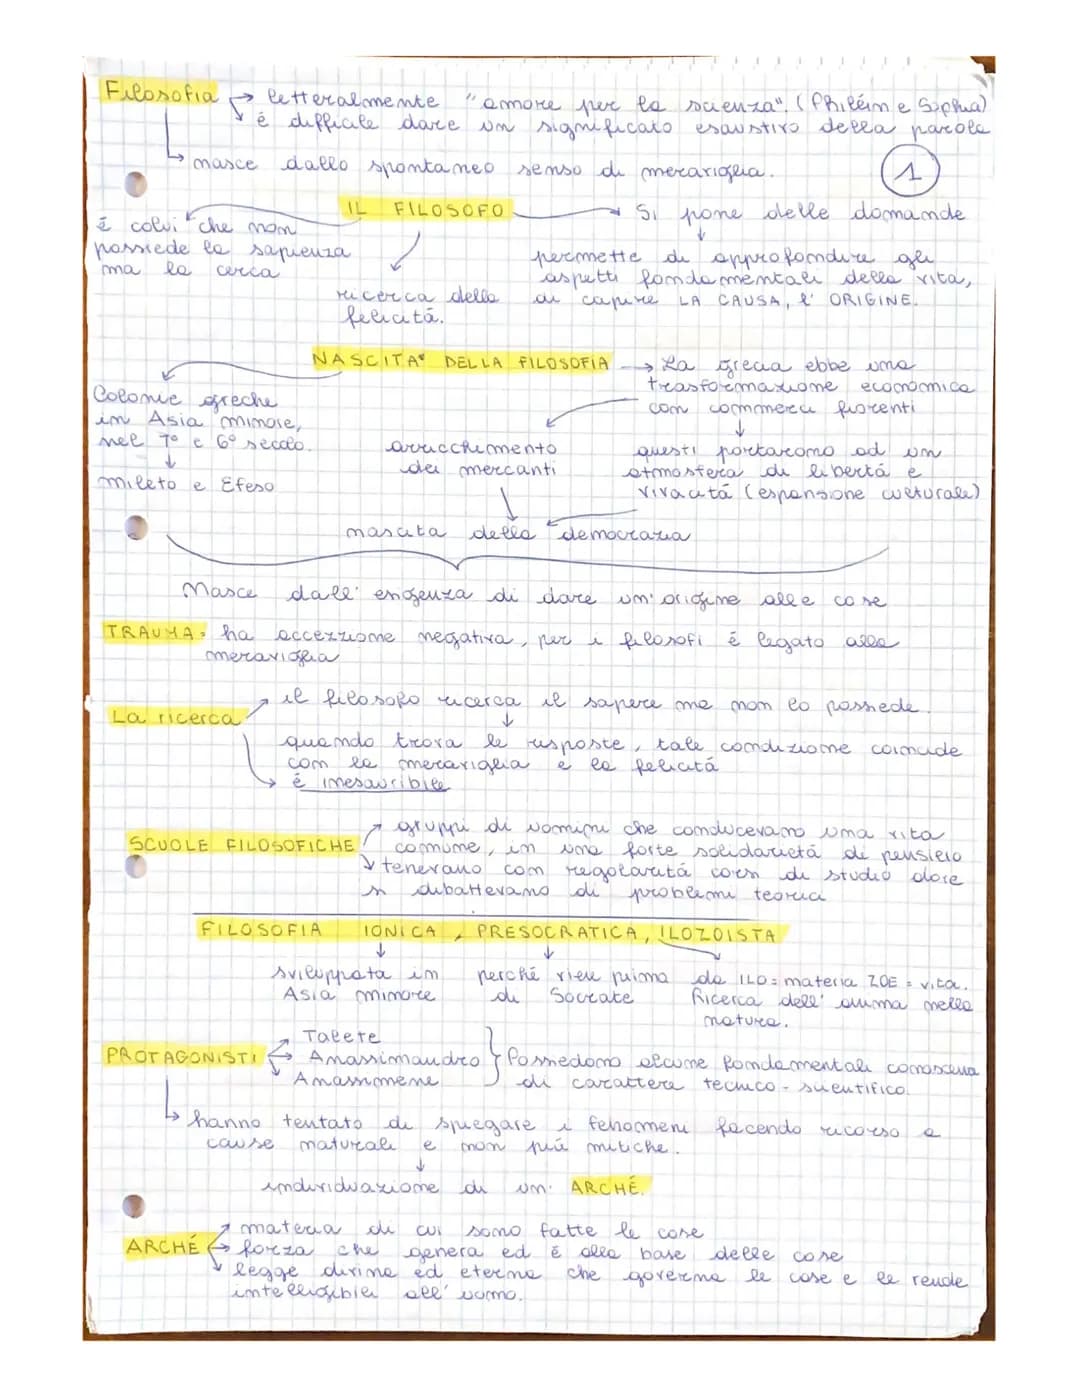 Filosofia → letteralmente "amore per la scienza". (Philéin e Sophia)
é difficile dare un significato esaustivo della parola
nasce dallo spontaneo senso di meraviglia.
1
IL FILOSOFO
→ Si pone delle domande
é colui che non
possiede la sapienza
ma la cerca
permette di approfondire gli
aspetti fondamentali della vita,
di capire LA CAUSA, l'ORIGINE.
ricerca della
felicitá.
NASCITA' DELLA FILOSOFIA → La grecia ebbe una
trasformazione economica
con commerci fiorenti
Colonie greche
in Asia minore,
nel 7° e 6° secolo.
↓
mileto e Efeso
arricchimento
dei mercanti
questi portarono ad un
atmosfera di libertá e
vivacitá (espansione culturale)
nascita della democrazia
Nasce dall'esigenza di dare un'origine alle cose
TRAUMA= ha accezzione negativa, per i filosofi é legato alla
meraviglia
La ricerca
il filosofo ricerca il sapere ma non lo possiede.
↓
quando trova le risposte, tale condizione coincide
con la meraviglia e la felicitá
→ é inesauribile
SCUOLE FILOSOFICHE
gruppi di uomini che conducevano una vita
comune, in una forte solidarietá di pensiero
tenevano con regolaritá corsi di studio dove
si dibattevano di problemi teorici
FILOSOFIA IONICA, PRESOCRATICA, ILOZOISTA
sviluppata in
Asia minore
perché vien prima
di Socrate
da ILO= materia ZOE = vita.
Ricerca dell'anima nella
natura.
PROTAGONISTI
Talete
Anassimandro
Anassimene
Possiedono alcune fondamentali conoscenza
di carattere tecnico-scientifico.
hanno tentato di spiegare i fenomeni facendo ricorso a
cause naturali e non piú mitiche.
↓
individuazione di un' ARCHÉ.
ARCHÉ
materia di cui sono fatte le cose
→ forza che genera ed é alla base delle cose
legge divina ed eterna che governa le cose e le rende
intelligibili all'uomo.